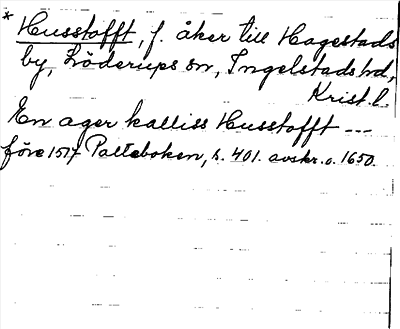 * Husstofft, f. åker till Hagestads
by, Löderups sn, Ingelstads hd,
Krist. l.
En ager kalliss Husstofft ---
före 1517 Palteboken, s. 401. avskr. o. 1650.